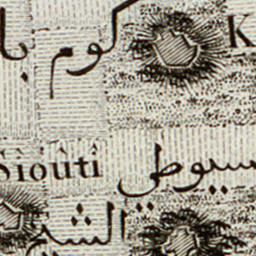 كوم با
K
Sioûti
سيوطي
الشيخ